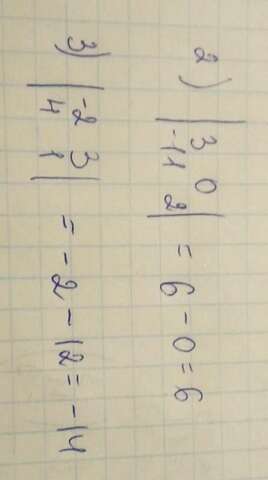 2) | 3 0 |
| -11 2 | = 6 - 0 = 6
3) | -2 3 |
| 4 1 | = -2 - 12 = -14